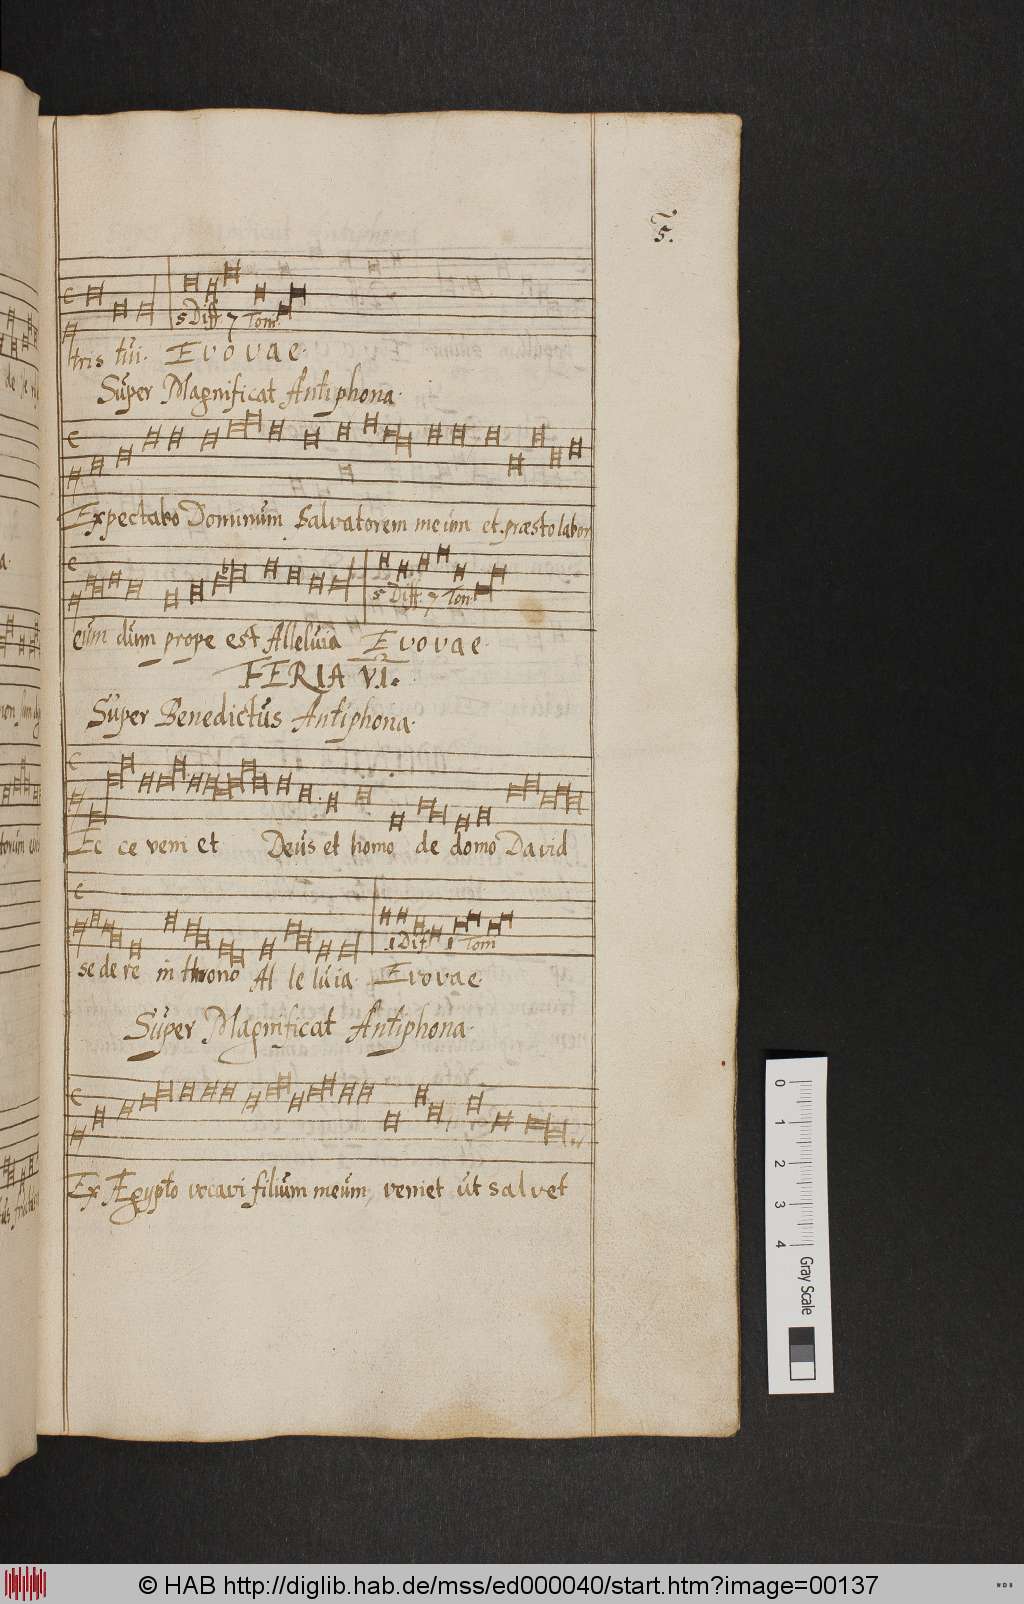 5.
5 Diff. 7 Ton.
tris tui. Evovae.
Super Magnificat Antiphona.
Expectabo Dominum Salvatorem meum et præstolabor
5 Diff. 7 Ton.
eum dum prope est Alleluia Evovae.
FERIA VI.
Super Benedictus Antiphona.
Ec ce veni et Deus et homo de domo David
1 Dif 1 Tom
se de re in throno Al le luia. Evovae.
Super Magnificat Antiphona.
Ex Ægypto vocavi filium meum, veniet ut salvet
0 1 2 3 4 Gray Scale
© HAB http://diglib.hab.de/mss/ed000040/start.htm?image=00137